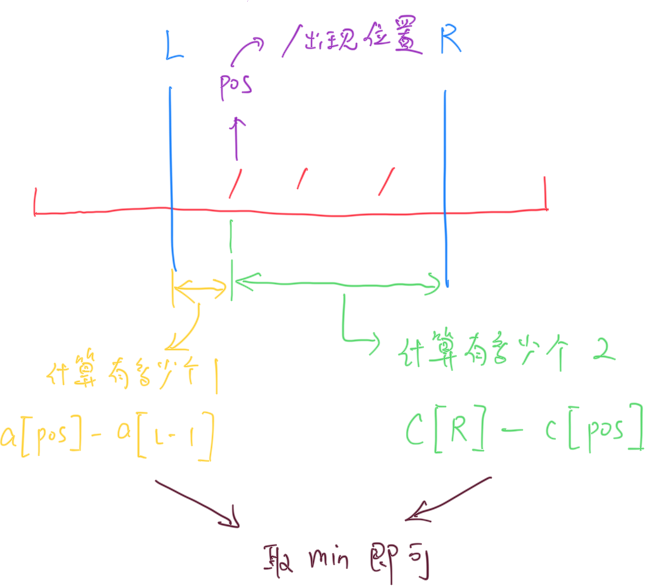 L
/出现位置
R
pos
/ / /
计算有多少个1
a[pos]-a[L-1]
计算有多少个 2
C[R]-c[pos]
取 min 即可